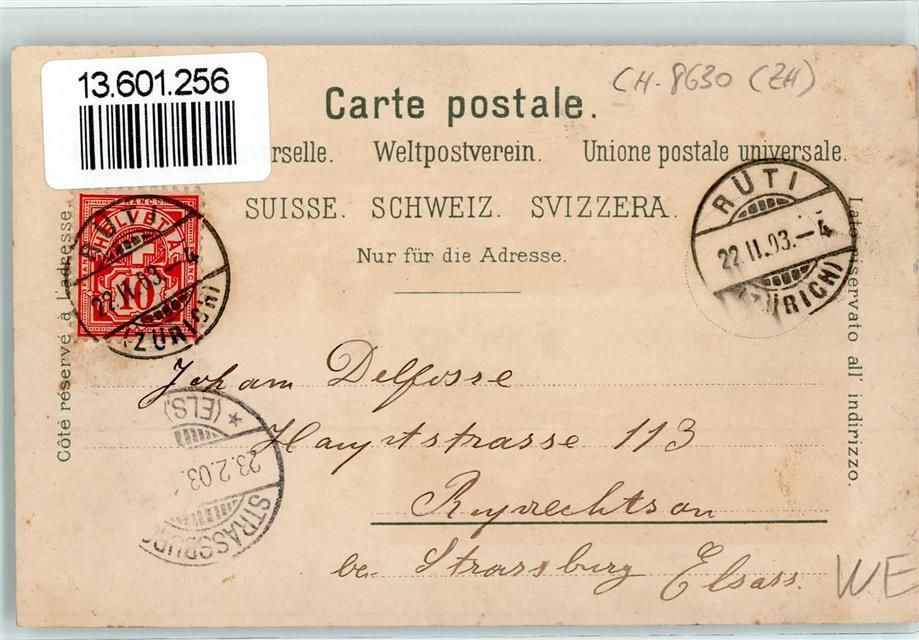 13.601.256
CH-8630 (ZH)
Carte postale.
verselle. Weltpostverein. Unione postale universale.
SUISSE. SCHWEIZ. SVIZZERA.
Nur für die Adresse.
Côté réservé à l'adresse.
Lato riservato all' indirizzo.
FRANCO
HELVETIA
10
22.II.03.-4
(ZÜRICH)
RÜTI
22.II.03.-4
(ZÜRICH)
Joham Delfosse
Hauptstrasse 113
Ruprechtsau
bei Strassburg Elsass.
STRASSBURG
23.2.03.
* (ELS)
W.E